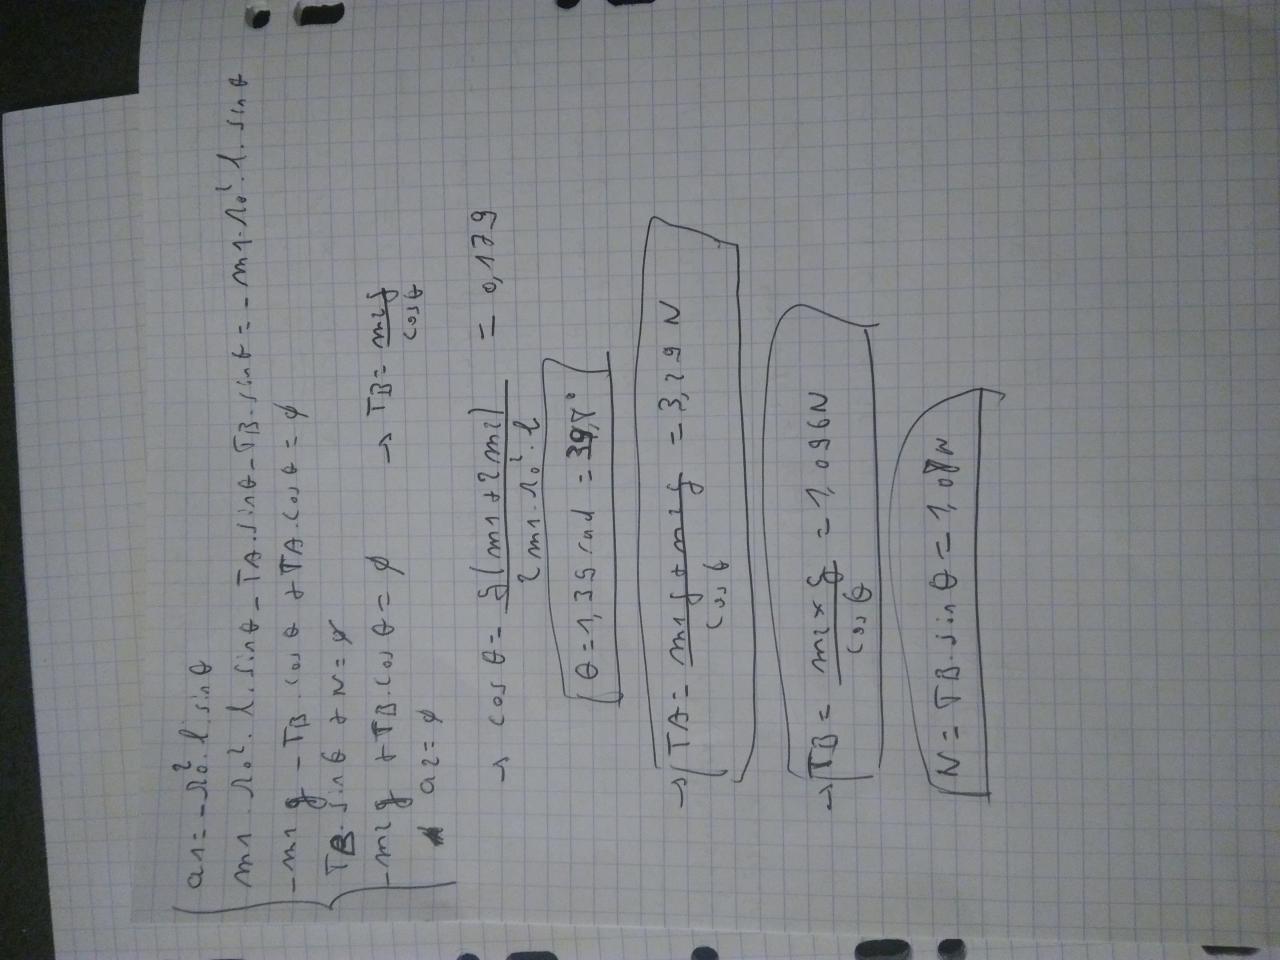 a1 = -Ω0². l. sinθ
m1. Ω0². l. sinθ - TA. sinθ - TB. sinθ = - m1. Ω0². l. sinθ
-m1 g - TB. cosθ + TA. cosθ = ∅
TB. sinθ + N = ∅
-m2 g + TB. cosθ = ∅ → TB = m2g / cosθ
a2 = ∅
→ cosθ = g(m1 + 2m2) / 2 m1. Ω0². l = 0,179
θ = 1,39 rad =
→ TA = m1 g + m2 g / cosθ = 3,29 N
→ TB = m2 × g / cosθ = 1,096 N
N = TB. sinθ = 1,08 N